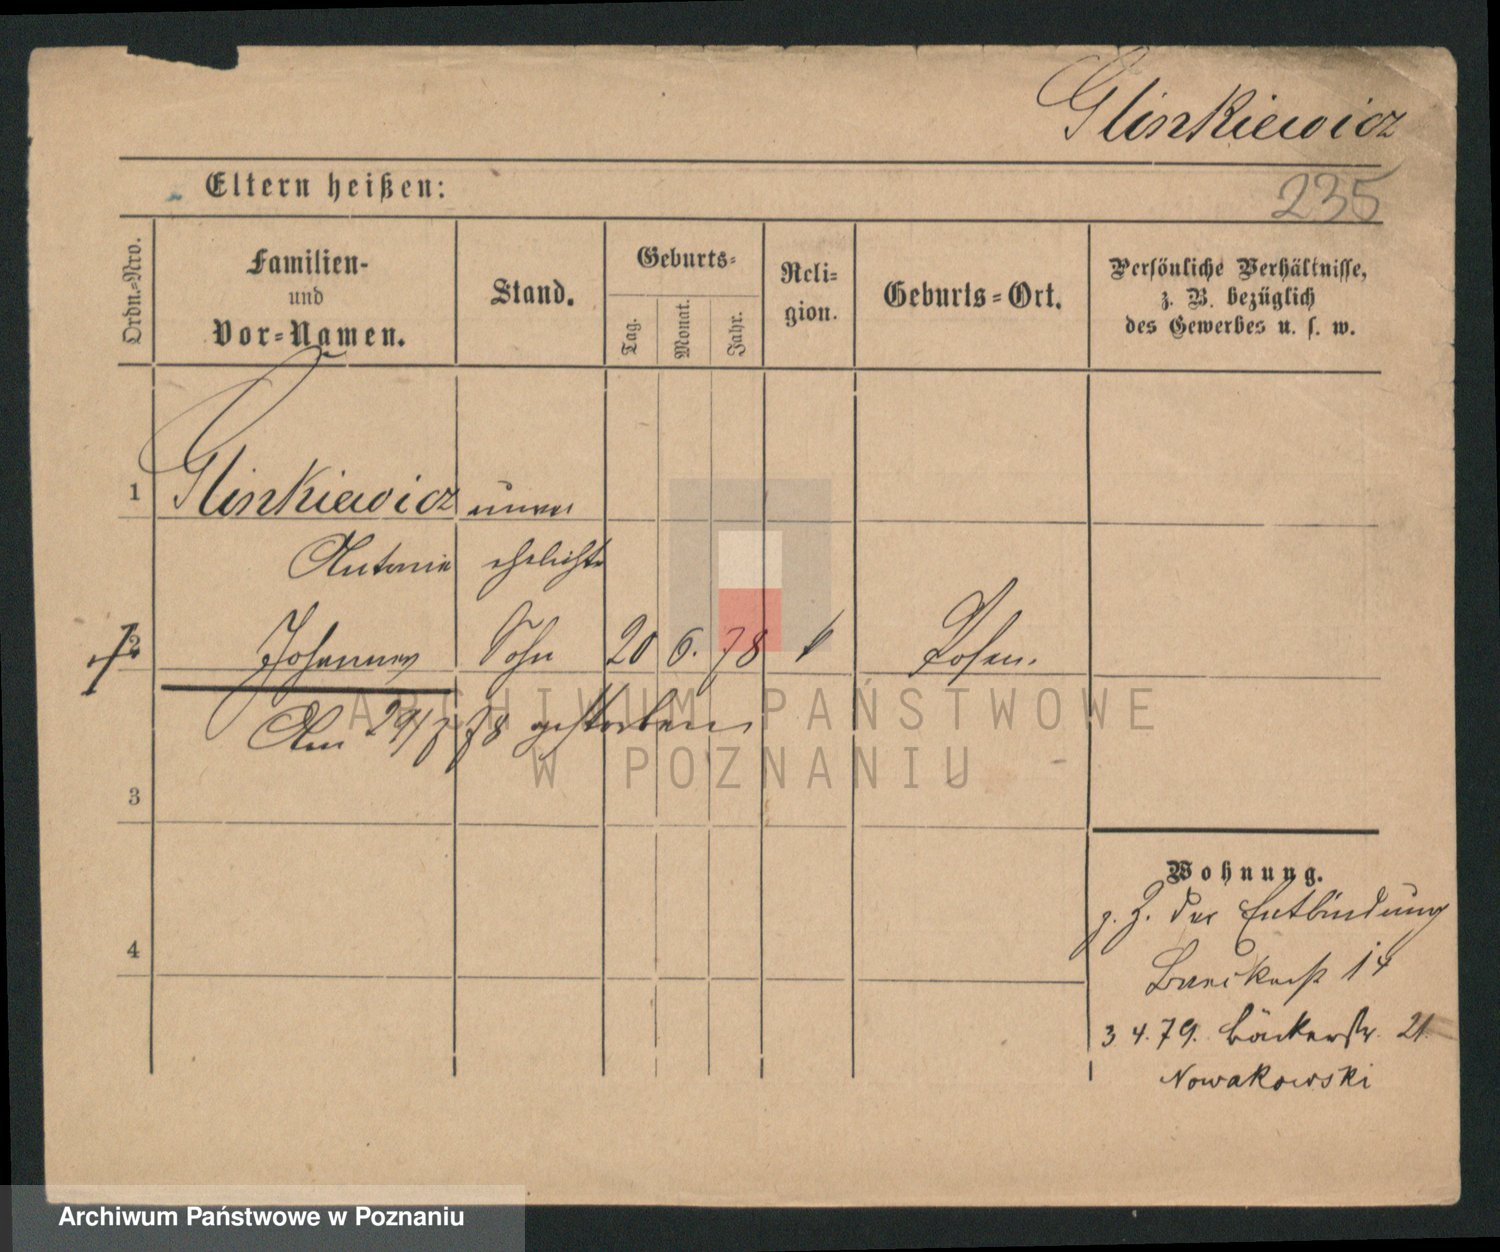 Glinkiewicz
Eltern heißen:
235
Ordn.=Nro.
Familien-
und
Vor=Namen.
Stand.
Geburts=
Tag.
Monat.
Jahr.
Reli=
gion.
Geburts=Ort.
Persönliche Verhältnisse,
z. B. bezüglich
des Gewerbes u. s. w.
1 Glinkiewicz unver
Antonie ehelichte
2 Johannes Sohn 20 6. 78 Posen.
Am 29/7 78 gestorben
ARCHIWUM PAŃSTWOWE
W POZNANIU
3
4
Wohnung.
z. Z. der Entbindung
14
3 4. 79. Bäckerstr. 21
Nowakowski
Archiwum Państwowe w Poznaniu